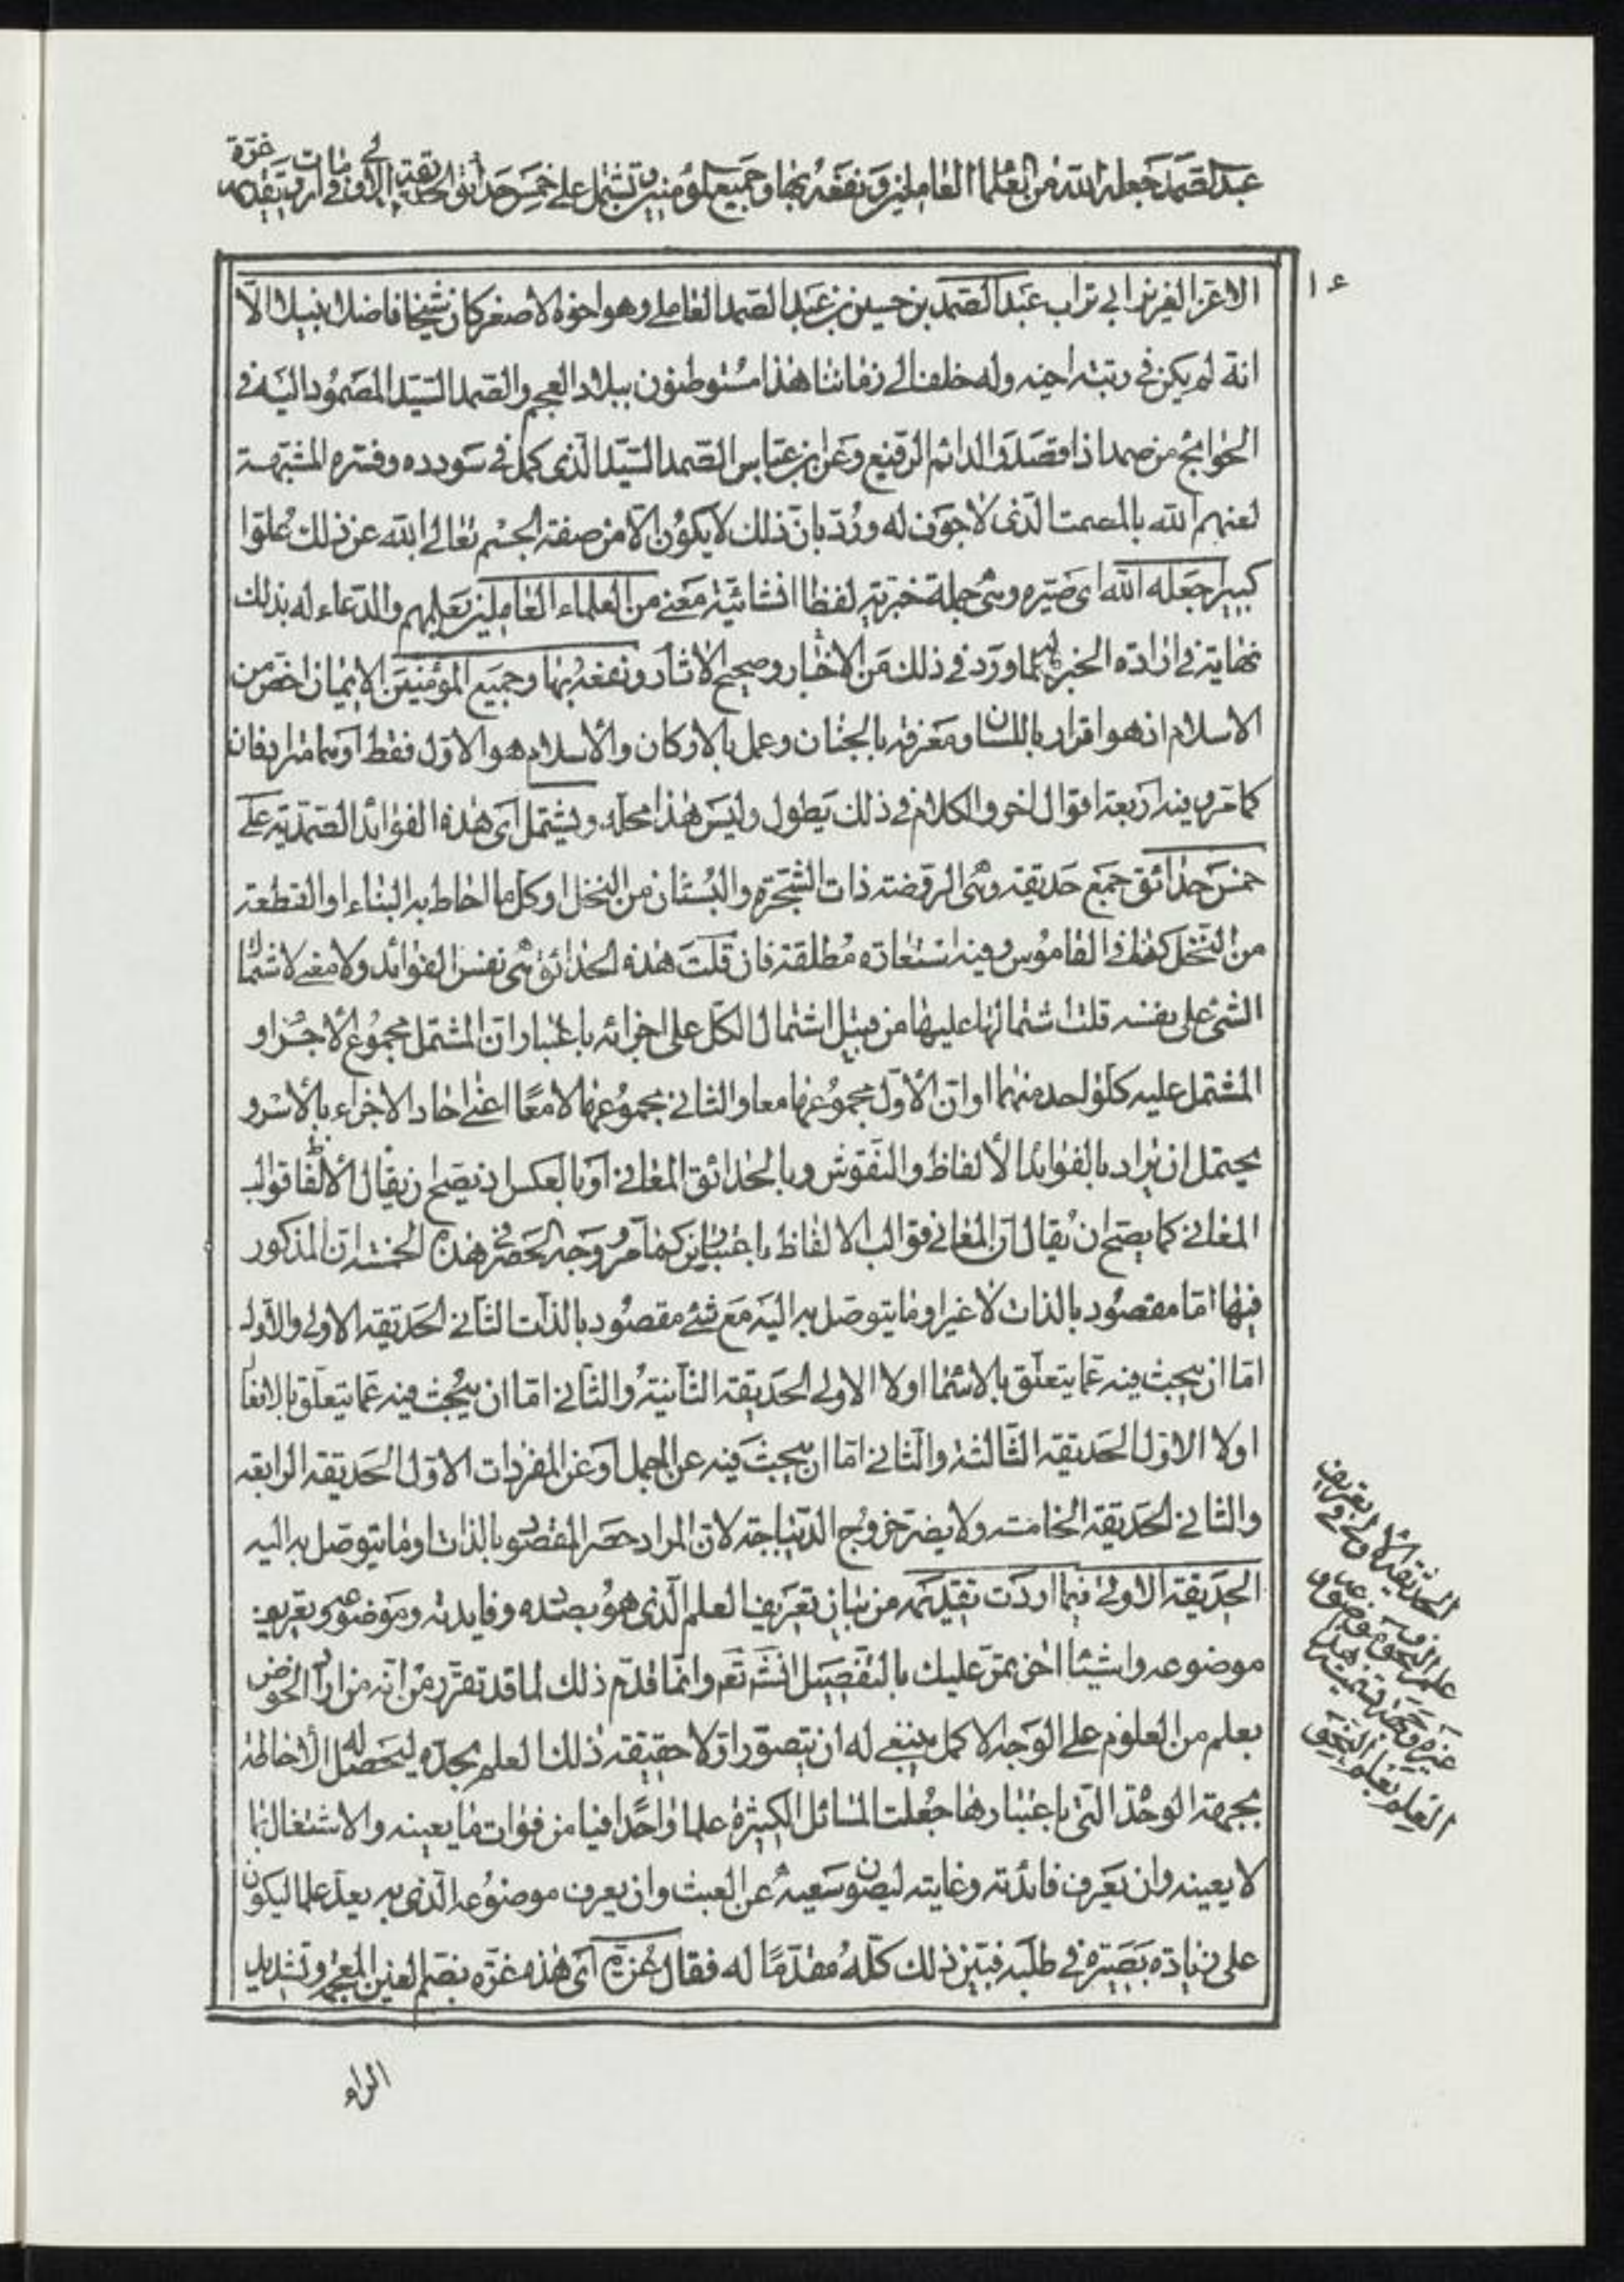 عبد الصمد جعله الله من العلماء العاملين ونفعه بها وجميع المؤمنين وتشتمل على خمس حدائق الحديقة الاولى فيما اردت تقديمه غرة
الاعز الفريد ابي تراب عبد الصمد بن حسين بن عبد الصمد العاملي وهو اخوه الاصغر كان شيخا فاضلا نبيلا الا
انه لم يكن في رتبة اخيه وله خلف الى زماننا هذا مستوطنون ببلاد العجم والصمد السيد المصمود اليه في
الحوائج من صمد اذا قصد والدائم الرفيع وعن ابن عباس الصمد السيد الذي كمل في سودده وفسره المشبهة
لعنهم الله بالمصمت الذي لا جوف له ورد بان ذلك لا يكون الا من صفة الجسم تعالى الله عن ذلك علوا
كبيرا جعله الله اى صيره وهى جملة خبرية لفظا انشائية معنى من العلماء العاملين بعلمهم والدعاء له بذلك
نهاية في ارادة الخير لما ورد في ذلك من الاخبار وصحيح الاثار ونفعه بها وجميع المؤمنين الايمان اخص من
الاسلام اذ هو اقرار باللسان ومعرفة بالجنان وعمل بالاركان والاسلام هو الاول فقط او هما مترادفان
كما مر وفيه اربعة اقوال اخر والكلام في ذلك يطول وليس هذا محله وتشتمل اى هذه الفوائد الصمدية على
خمس حدائق جمع حديقة وهى الروضة ذات الشجرة والبستان من النخل او كل ما احاط به البناء او القطعة
من النخل كذا في القاموس وفيه استعارة مطلقة فان قلت هذه الحدائق هى نفس الفوائد ولا معنى لاشتمال
الشئ على نفسه قلت اشتمالها عليها من قبيل اشتمال الكل على اجزائه باعتبار ان المشتمل مجموع الاجزاء و
المشتمل عليه كل واحد منهما او ان الاول مجموعها معا والثاني مجموعها لا معا اعنى احاد الاجزاء بالاسر و
يحتمل ان يراد بالفوائد الالفاظ والنقوش وبالحدائق المعاني او بالعكس اذ يصح ان يقال الالفاظ قوالب
المعاني كما يصح ان يقال ان المعاني قوالب الالفاظ باعتبارين كما مر ووجه الحصر في هذه الخمسة ان المذكور
فيها اما مقصود بالذات لا غير او ما يتوصل به اليه مع شئ مقصود بالذات الثاني الحديقة الاولى والاول
اما ان يبحث فيه عما يتعلق بالاسماء اولا الاولى الحديقة الثانية والثاني اما ان يبحث فيه عما يتعلق بالافعال
اولا الاول الحديقة الثالثة والثاني اما ان يبحث فيه عن الجمل او عن المفردات الاول الحديقة الرابعة
والثاني الحديقة الخامسة ولا يضر خروج الديباجة لان المراد حصر المقصود بالذات او ما يتوصل به اليه
الحديقة الاولى فيما اردت تقديمه من بيان تعريف العلم الذي هو بصدده وفايدته وموضوعه وتعريف
موضوعه واشياء اخر تمر عليك بالتفصيل انشء تع وانما قدم ذلك لما قد تقرر من انه من اراد الخوض
بعلم من العلوم على الوجه الاكمل ينبغي له ان يتصور اولا حقيقة ذلك العلم بحده ليحصل له الاحاطة
بجهة الوحدة التي باعتبارها جعلت المسائل الكثيرة علما واحدا فيامن فوات ما يعينه والاشتغال بما
لا يعينه وان يعرف فائدته وغايته ليصون سعيه عن العبث وان يعرف موضوعه الذي به يعد علما ليكون
على زيادة بصيرة في طلبه فبين ذلك كله مقدما له فقال غرة اى هذه غرة بضم الغين المعجمة وتشديد
الراء
الحديقة الاولى في تعريف
علم النحو وموضوعه و
غيره وجه تسمية هذا
العلم بعلم النحو